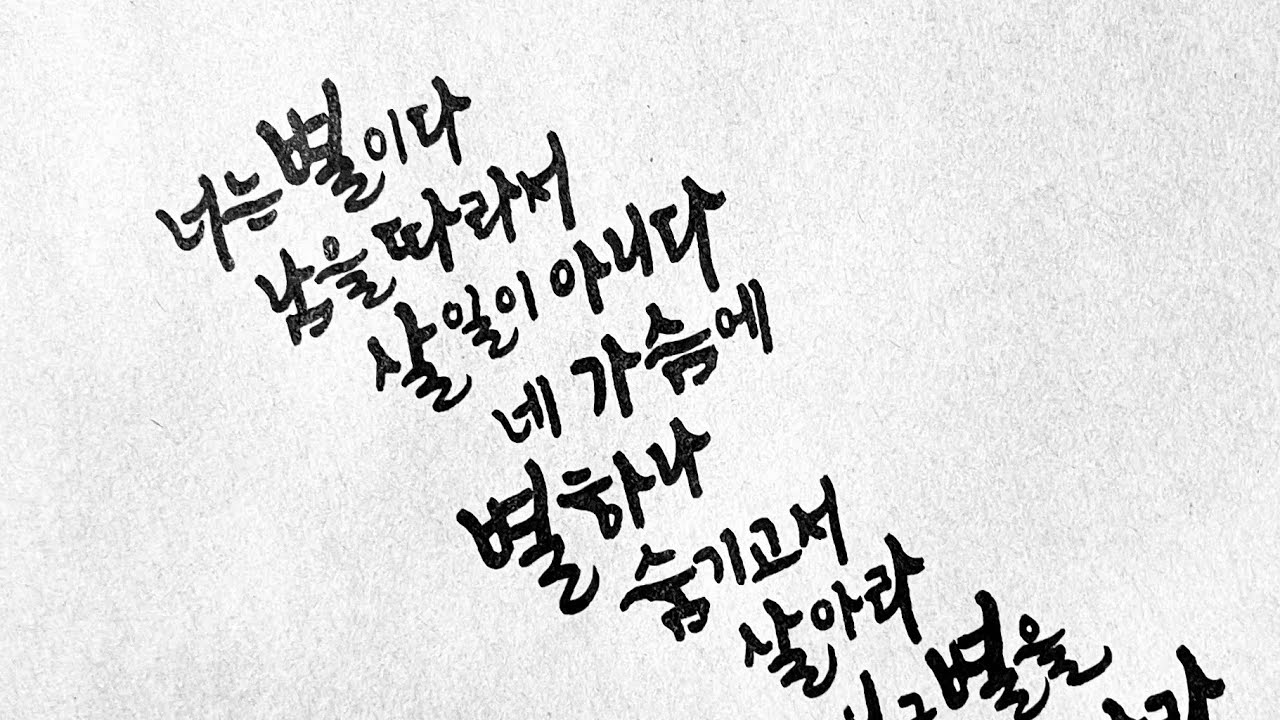 너는 별이다
남을 따라서
살 일이 아니다
네 가슴에
별 하나
숨기고서
살아라
별을